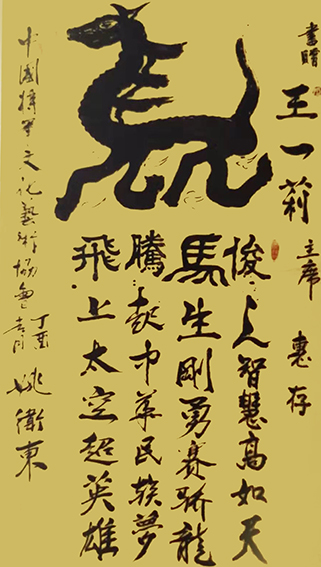 書贈
王一莉 主席 惠存
俊人智慧高如天
馬生剛勇赛骄龍
騰起中華民族夢
飛上太空超英雄
中國將軍文化藝術協會
丁酉
姚衛東